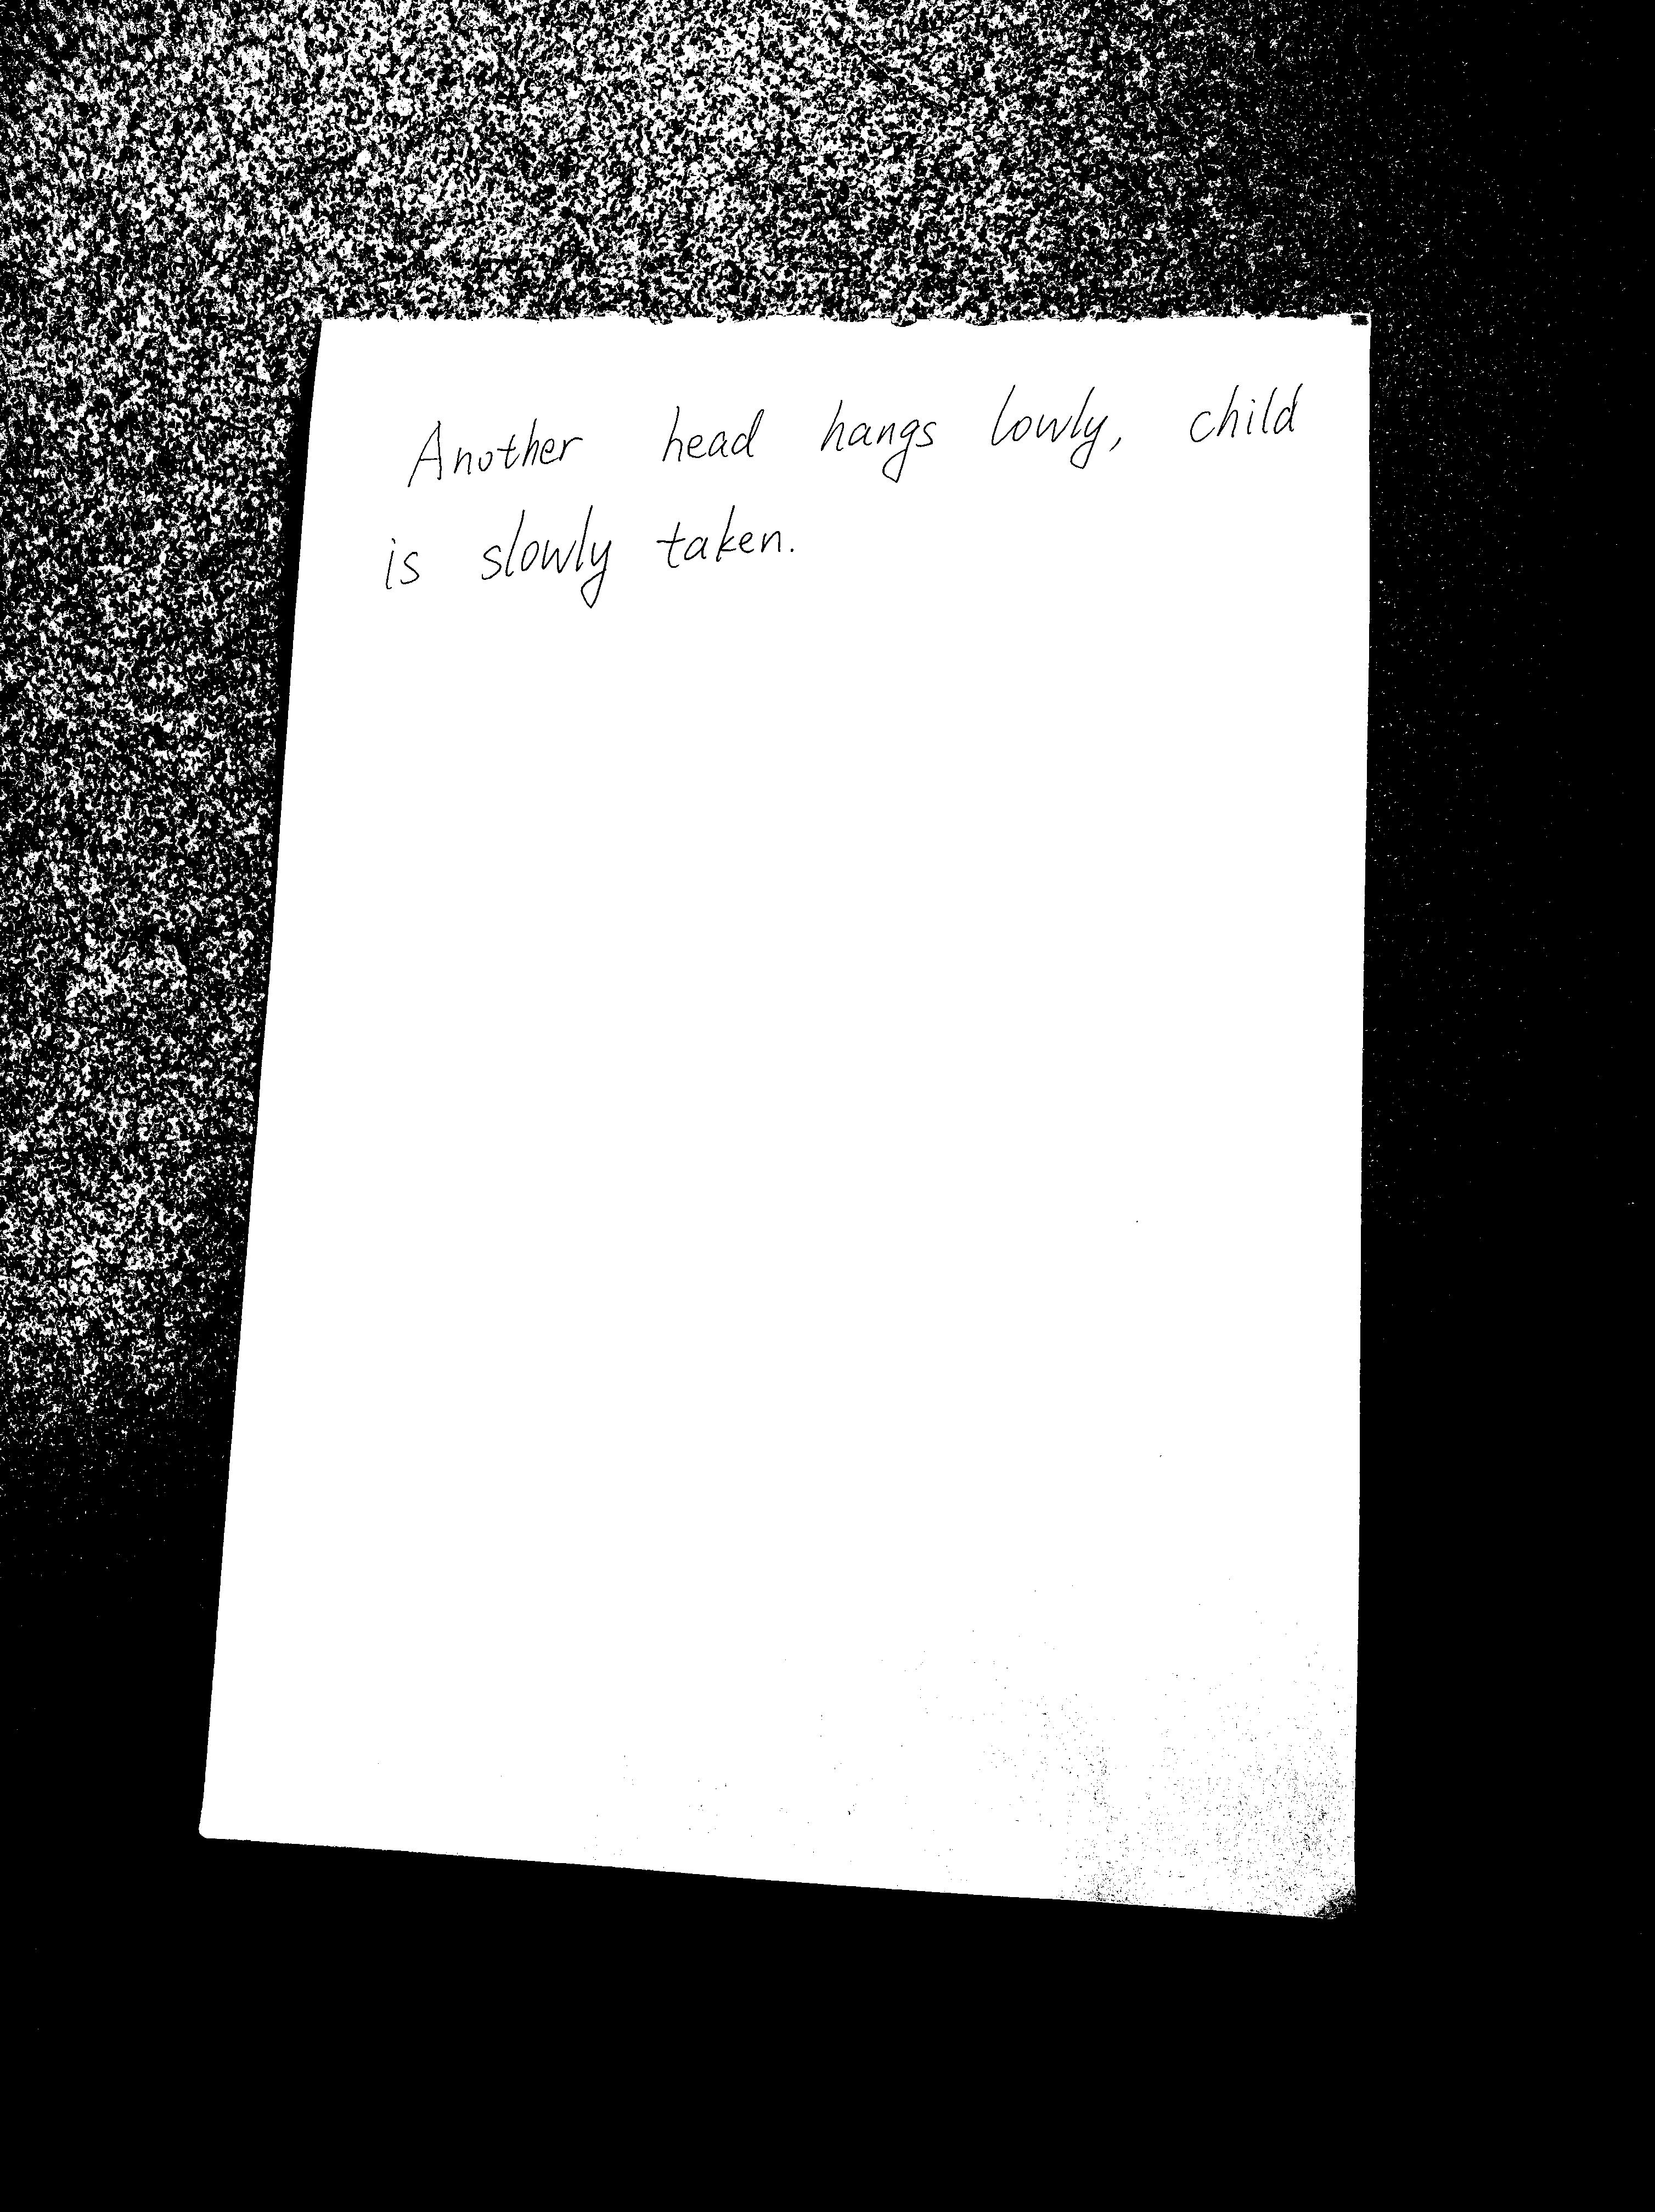 Another head hangs lowly, child
is slowly taken.